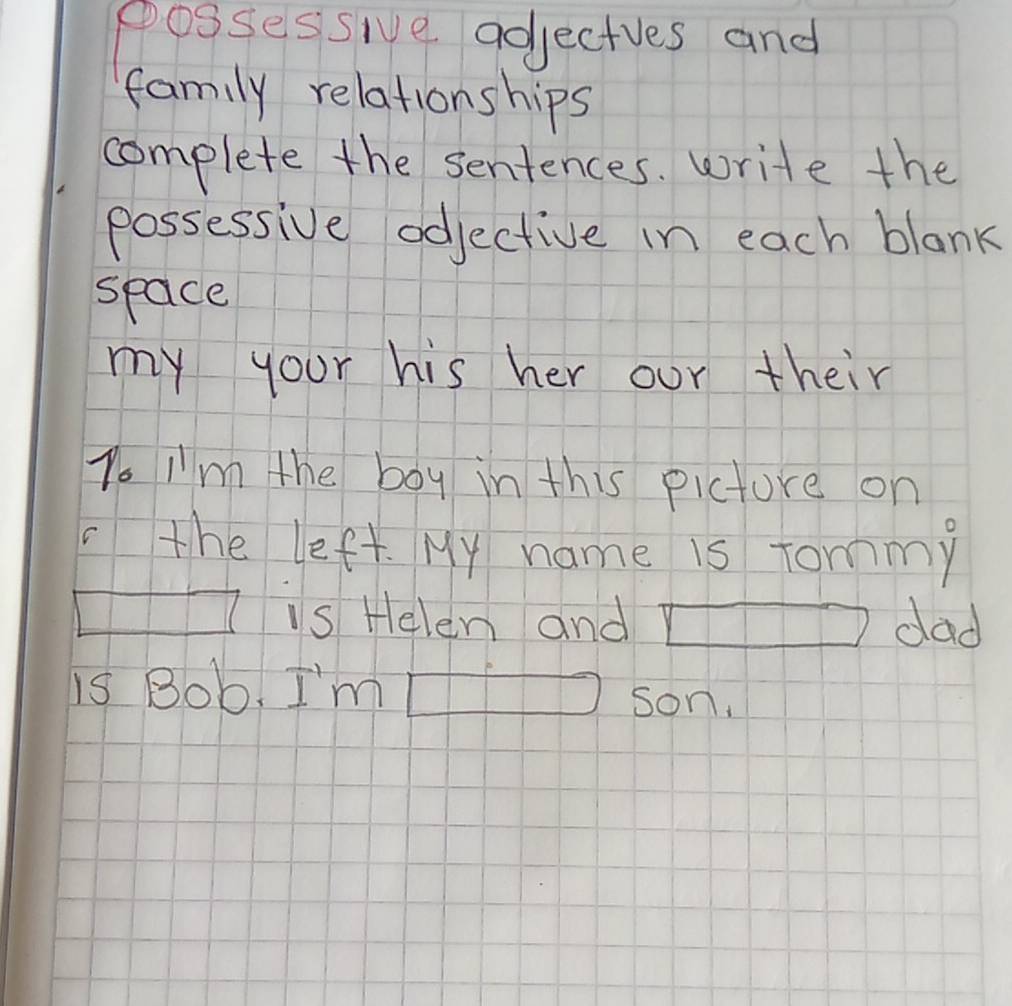 possessive adjectves and
family relationships
complete the sentences. write the
possessive adjective in each blank
space
my your his her our their
1. I'm the boy in this picture on
the left. My name is Tommy
is Helen and dad
is Bob. I'm son.